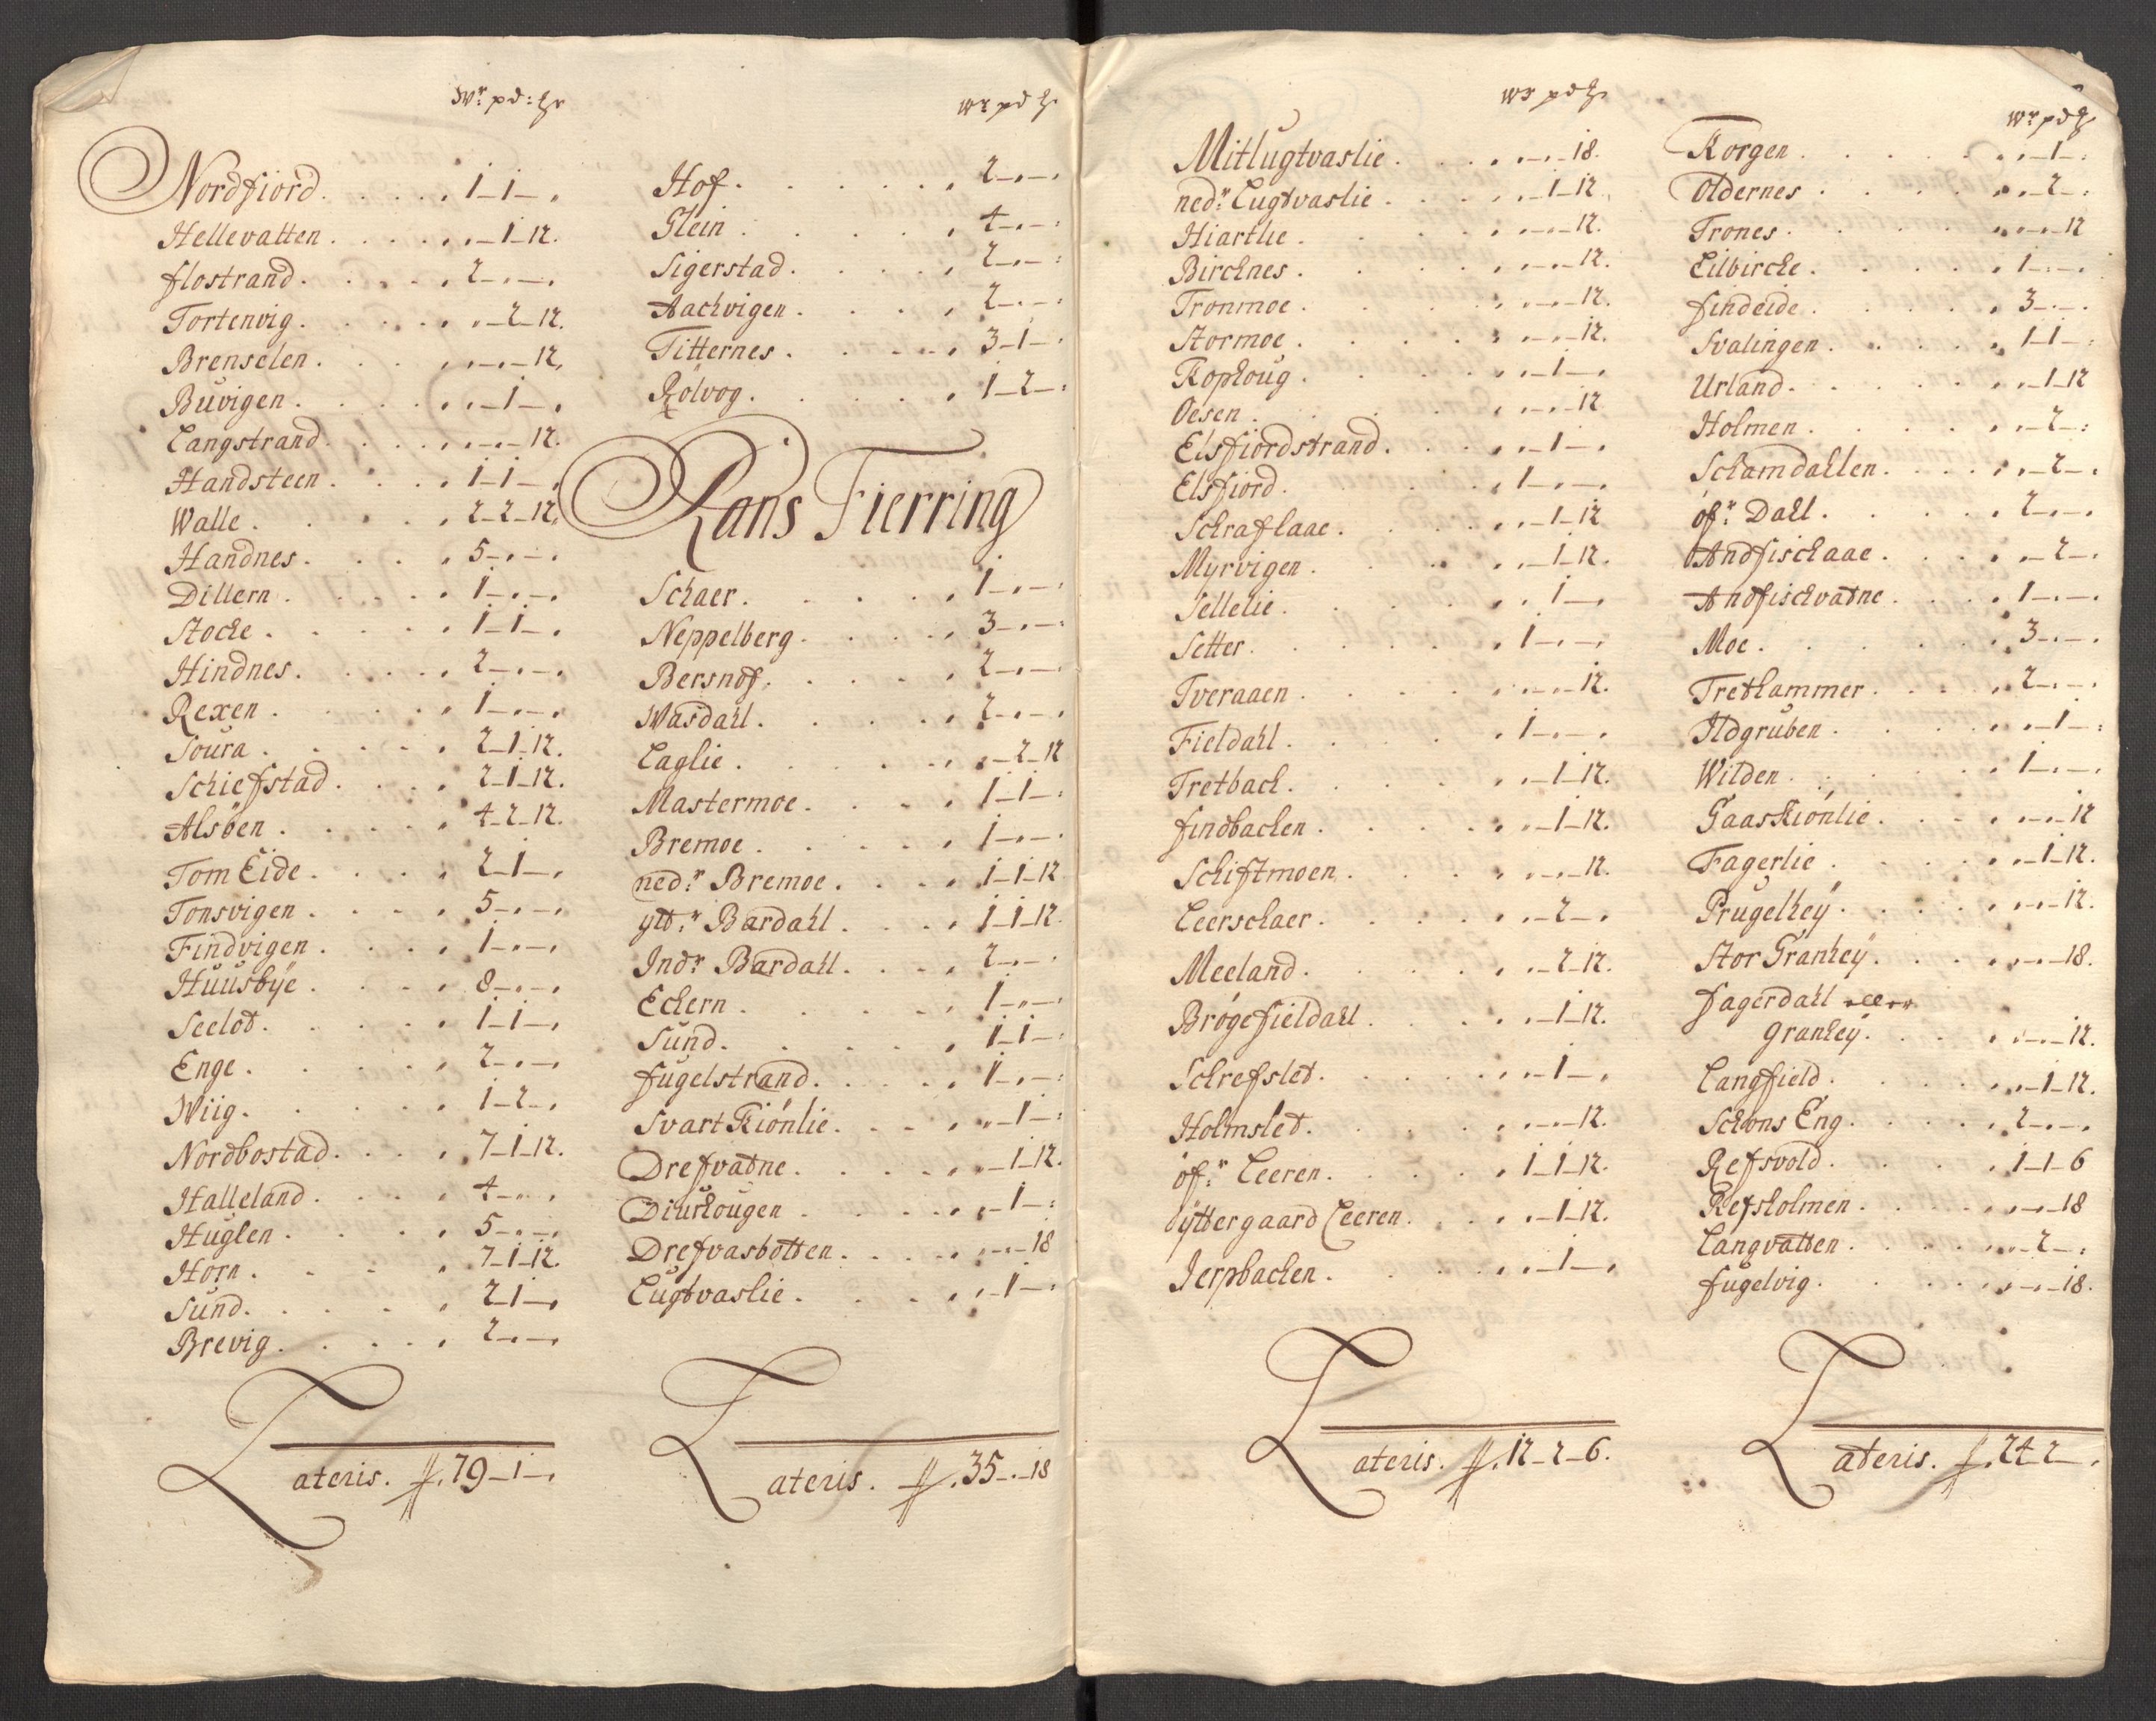 Wr: pd: 
Nordfiord . . . . 1_1_ .
Hellevatten . . . . . ._1_12.
flostrand . . . . . 2_._.
Tortenvig . . . . . ._2_12.
Brenselen . . . . ._._12.
Buvigen . . . . . ._1_.
Langstrand . . . . ._._12.
Handsteen . . . . 1_1_.
Walle . . . . . 2_2_12.
Handnes . . . . 5_._.
Dillern . . . . . 1_._.
Stocke . . . . . 1_1_.
Hindnes . . . . 2_._.
Rexen . . . . . 1_._.
Soura . . . . . 2_1_12.
Schiefstad . . . . 2_1_12.
Alsöen . . . . . 4_2_12.
Tom Eide . . . . 2_1_.
Tonsvigen . . . . 5_._.
Findvigen . . . . 1_._.
Huusbye . . . . 8_._.
Seelod . . . . . 1_1_.
Enge . . . . . 2_._.
Wiig . . . . . 1_2_.
Nordbostad . . . . 7_1_12.
Halleland . . . . 4_._.
Huglen . . . . . 5_._.
Horn . . . . 7_1_12.
Sund . . . . . 2_1_.
Brevig . . . . . 2_._.
Lateris . 79_1_.
wr pd
Hof . . . . . . 2_._.
Glein . . . . . 4_._.
Sigerstad . . . . . 2_._.
Aackvigen . . . . 2_._.
Titternes . . . . . 3_1_.
Rölvog . . . . . 1_2_.
Rans Fierring
Schaer . . . . . 1_._.
Neppelberg . . . . . 3_._.
Bersnof . . . . . 2_._.
Wasdahl . . . . . 2_._.
Laglie . . . . . ._2_12
Mastermoe . . . . 1_1_.
Bremoe . . . . . 1_._.
nedr: Bremoe . . . . 1_1_12
ytdr: Bardahl . . . . 1_1_12.
Indr: Bardahl . . . . 2_._.
Eckern . . . . . 1_._.
Sund . . . . . . 1_1_.
fugelstrand . . . . . 1_._.
Svart Kiönlie . . . . ._1_.
Drefvadne . . . . . ._1_12.
Diurhougen . . . . . ._1_.
Drefvasbotten . . . . ._._18
Lugtvaslie . . . . . ._1_.
Lateris . 35_._18
wr pd
Mitlugtvaslie . . . . ._._18.
nedr: Lugtvaslie . . . . ._1_12.
Hiartlie . . . . ._._12.
Bircknes . . . . ._._12.
Tronmoe . . . . ._._12.
Stormoe . . . . ._._12.
Kophoug . . . . ._1_.
Oesen . . . . ._._12
Elsfiordstrand . . . . ._1_.
Elsfiord . . . . 1_._.
Schraflaae . . . . ._1_12
Myrvigen . . . . ._1_12.
Sellelie . . . . ._1_.
Setter . . . . . 1_._.
Tveraaen . . . . ._._12.
Fieldahl . . . . 1_._.
Tretback . . . . ._1_12.
findbacken . . . . ._1_12.
Schiftmoen . . . . ._._12.
Leerschaer . . . . ._2_.
Meeland . . . . ._2_12.
Brögefieldahl . . . . ._1_12.
Schrefsled . . . . ._1_.
Holmsled . . . . ._._12.
öfr: Leeren . . . . 1_1_12.
yttergaard Leeren . . . ._1_12.
Jerpbacken . . . . ._1_.
Lateris . 12_2_6.
wr pd
Korgen . . . . . ._1_.
Oldernes . . . . . ._2_.
Trones . . . . ._._12
Lilbircke . . . . . 1_._.
findeide . . . . . 3_._.
Svalingen . . . . . 1_1_.
Urland . . . . . ._1_12
Holmen . . . . . ._2_.
Schamdahlen . . . . ._2_.
öfr: Dahl . . . . . 2_._.
Andfischaae . . . . ._2_.
Andfischvadne . . . . 1_._.
Moe . . . . . 3_._.
Trethammer . . . . 2_._.
Ildgruben . . . . . ._1_.
Wilden . . . . . 1_._.
Gaaskiönlie . . . . ._._12
Fagerlie . . . . . ._1_12.
Prugelhey . . . . . ._._12.
Stor Granhey . . . . ._._18.
fagerdahl eller
granhey . . . . ._._12.
Langfield . . . . . ._1_12.
Schons Eng . . . . . 2_._.
Refsvold . . . . . 1_1_6
Refsholmen . . . . ._._18
Langvatten . . . . ._2_.
fugelvig . . . . . ._._18.
Lateris . 24_2_.